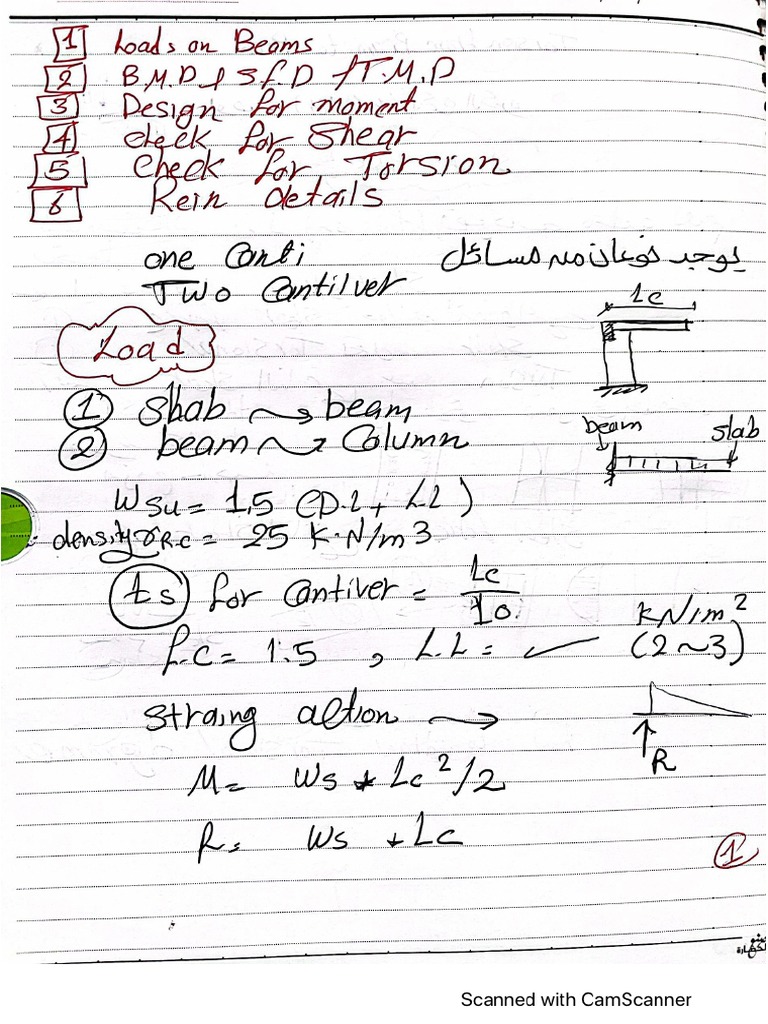 1 Loads on Beams
2 B.M.D & S.F.D & T.M.D
3 Design for moment
4 check for Shear
5 Check for Torsion
6 Rein details
one Canti يوجد نوعان من مسائل
Two Cantilver
Lc
Load
1 Slab → beam
2 beam → Column
beam slab
WSu = 1,5 (D.L + L.L)
density γR.C = 25 K.N/m3
ts for Cantiver = Lc/10
F.C = 1.5 , L.L = ✓ (2~3) kN/m²
straing action →
R
M = Ws * Lc²/2
R = Ws * Lc
1
Scanned with CamScanner